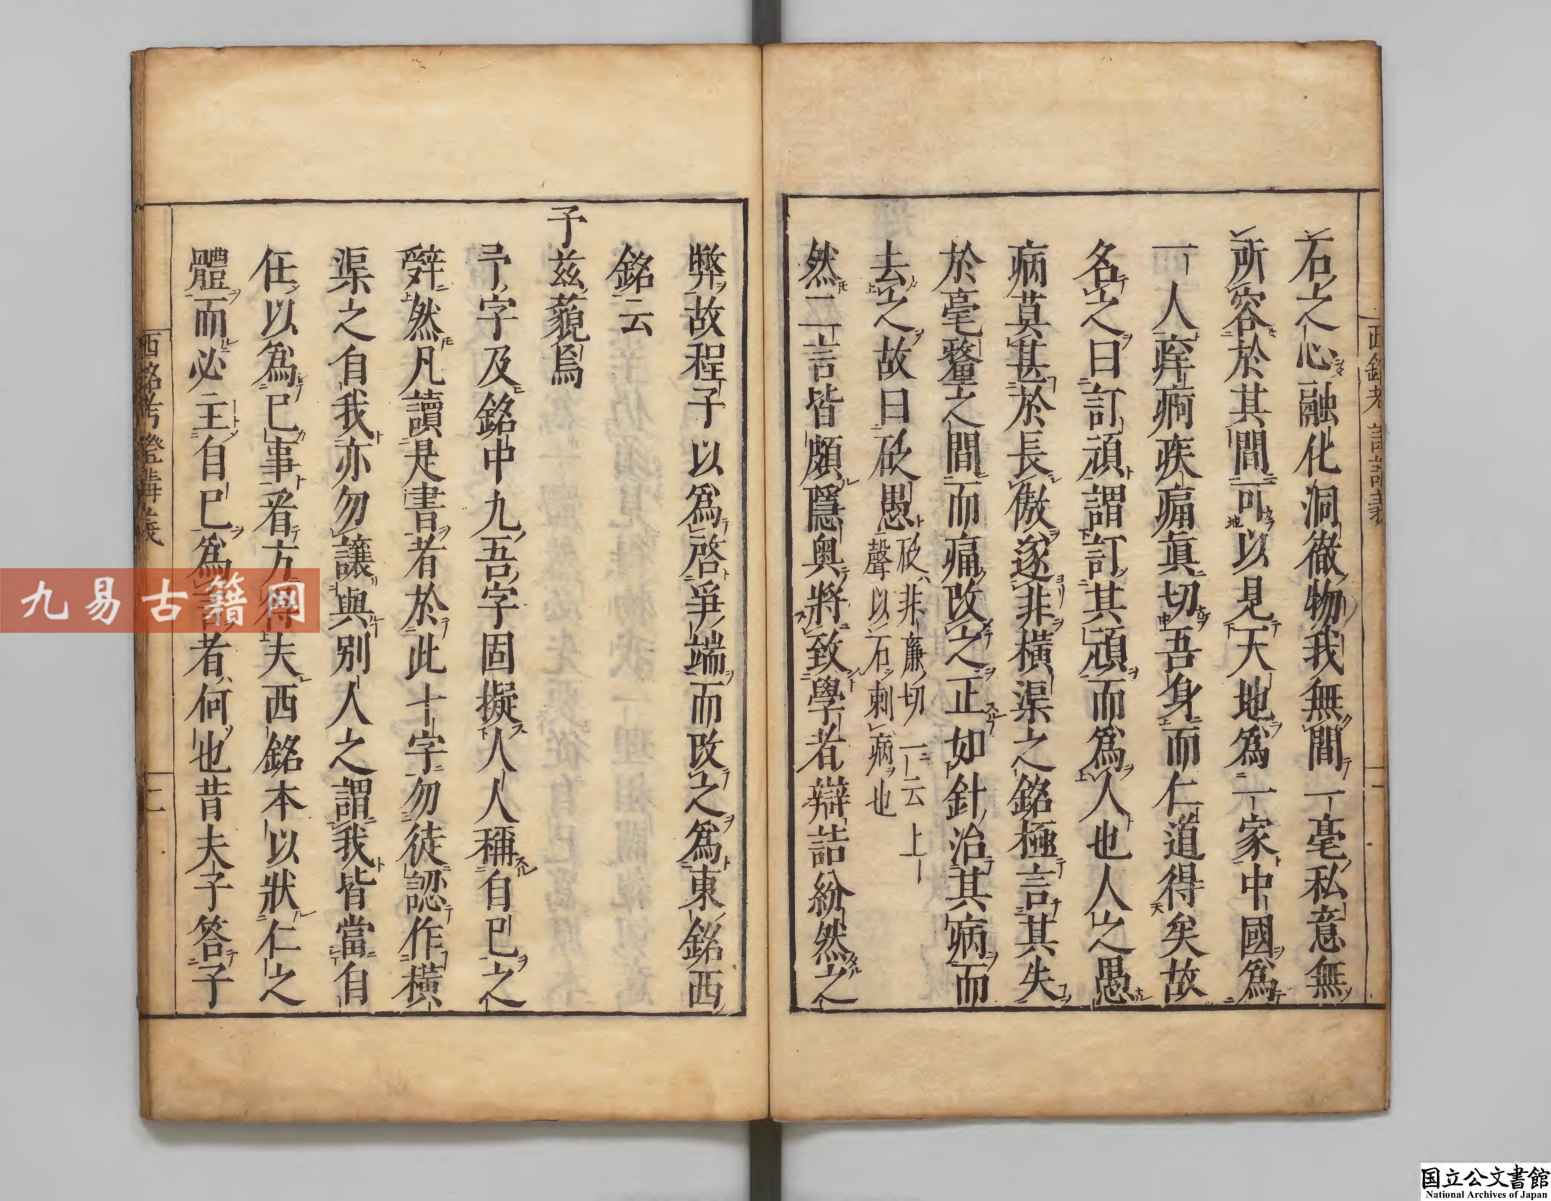 石之心融化洞徹物我無間一毫私意無
所容於其間可以見天地爲一家中國爲
一人痒痾疾痛眞切吾身而仁道得矣故
名之曰訂頑謂訂其頑而爲人也人之愚
病莫甚於長傲遂非橫渠之銘極言其失
於毫釐之間而痛改之正如針治其病而
去之故曰砭愚砭非廉切一云上
聲以石刺病也
然二言皆頗隱奧將致學者辯詰紛然之
西銘考證講義
弊故程子以爲啓爭端而改之爲東銘西
銘云
予兹藐焉
予字及銘中九吾字固擬人人稱自己之
辭然凡讀是書者於此十字勿徒認作橫
渠之自我亦勿讓與別人之謂我皆當自
任以爲己事看方得夫西銘本以狀仁之
體而必主自己爲言者何也昔夫子答子
西銘考證講義
九易古籍网
国立公文書館
National Archives of Japan